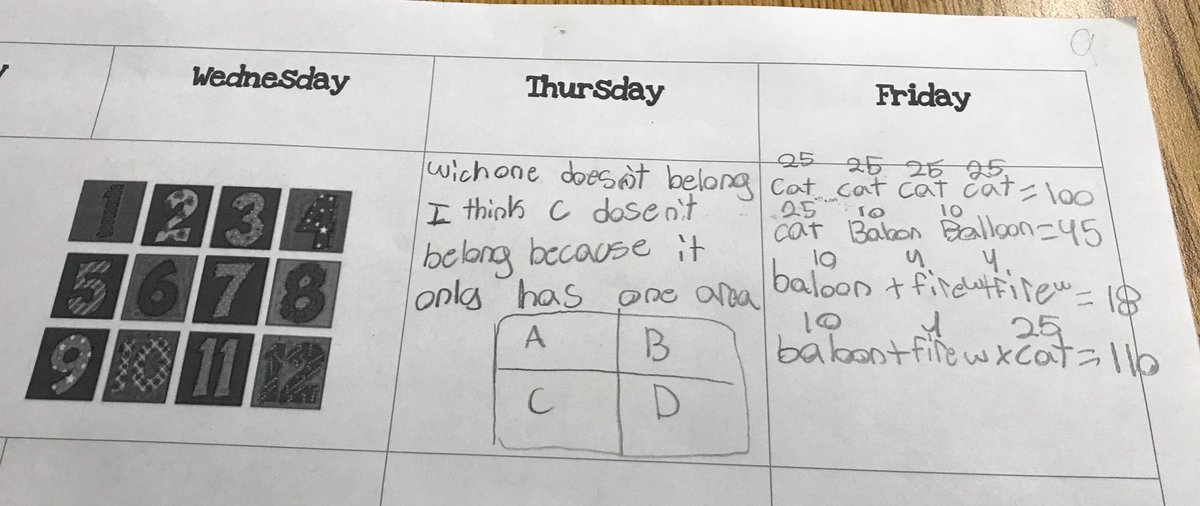 Wednesday
Thursday
Friday
1 2 3 4
5 6 7 8
9 10 11 12
wich one doesn't belong
I think C dosen't
belong because it
only has one area
A B
C D
25 25 25 25
cat cat cat cat = 100
25 10 10
cat Baloon Balloon = 45
10 4 4
baloon + firew + firew = 18
10 4 25
baloon + firew x cat = 110